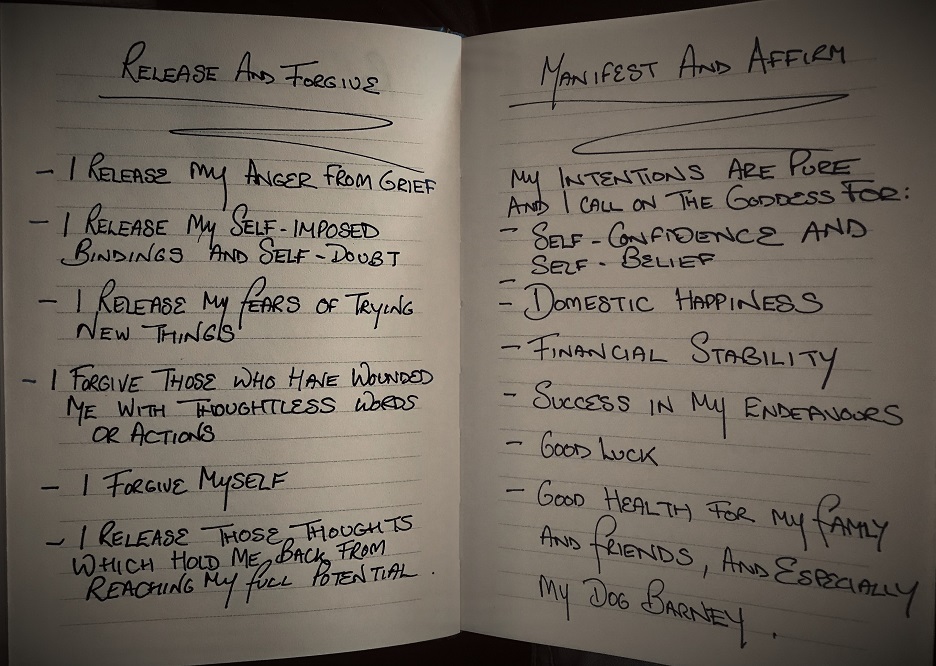 RELEASE AND FORGIVE
- I RELEASE MY ANGER FROM GRIEF
- I RELEASE MY SELF-IMPOSED
BINDINGS AND SELF-DOUBT
- I RELEASE MY FEARS OF TRYING
NEW THINGS
- I FORGIVE THOSE WHO HAVE WOUNDED
ME WITH THOUGHTLESS WORDS
OR ACTIONS
- I FORGIVE MYSELF
- I RELEASE THOSE THOUGHTS
WHICH HOLD ME BACK FROM
REACHING MY FULL POTENTIAL.
MANIFEST AND AFFIRM
MY INTENTIONS ARE PURE
AND I CALL ON THE GODDESS FOR:
- SELF-CONFIDENCE AND
SELF-BELIEF
-
- DOMESTIC HAPPINESS
- FINANCIAL STABILITY
- SUCCESS IN MY ENDEAVOURS
- GOOD LUCK
- GOOD HEALTH FOR MY FAMLY
AND FRIENDS, AND ESPECIALLY
MY DOG BARNEY.